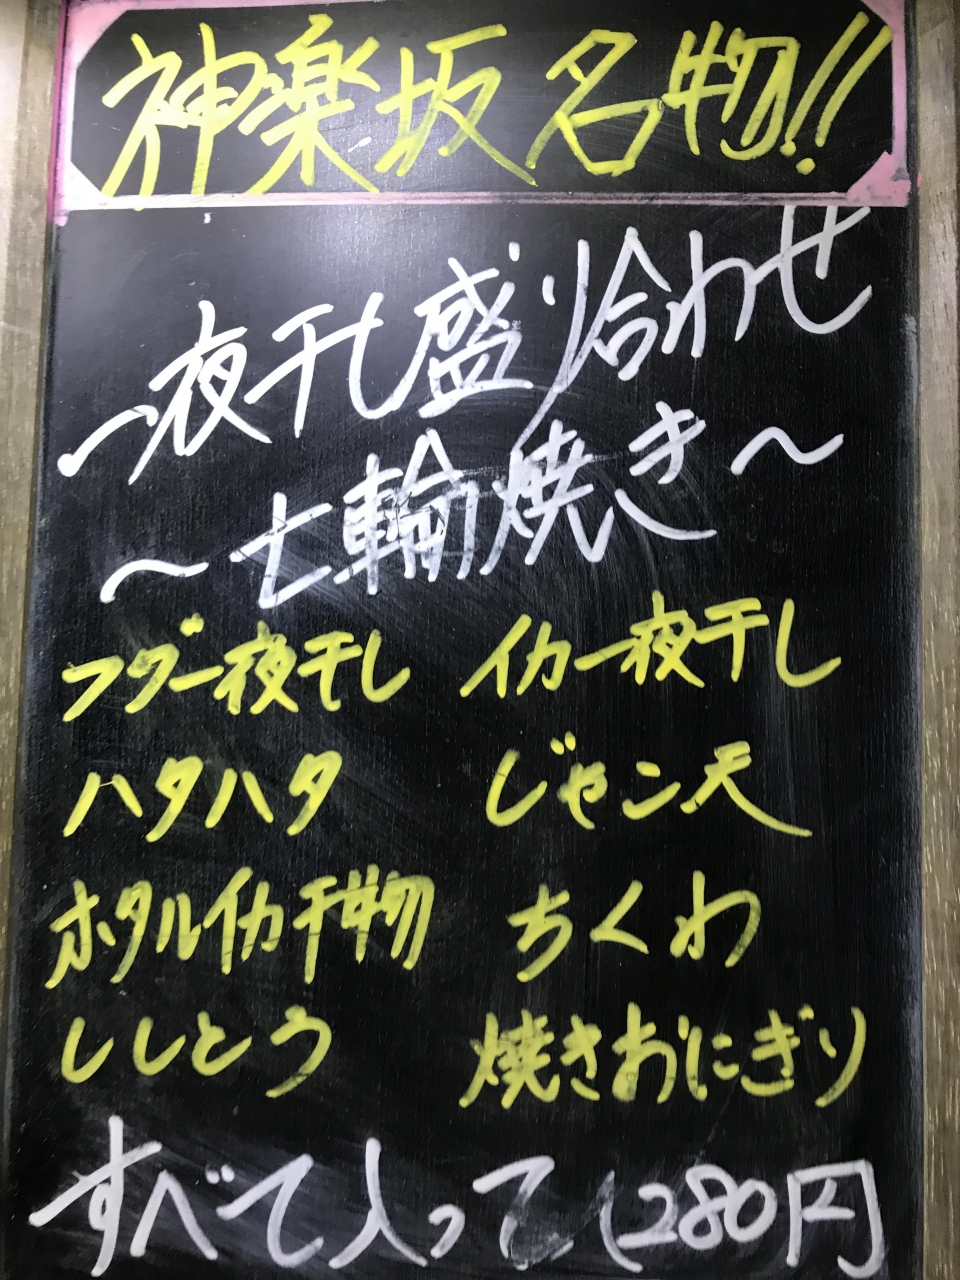 神楽坂名物!!
一夜干し盛り合わせ
〜七輪焼き〜
フグ一夜干し イカ一夜干し
ハタハタ じゃこ天
ホタルイカ干物 ちくわ
ししとう 焼きおにぎり
すべて入って1280円